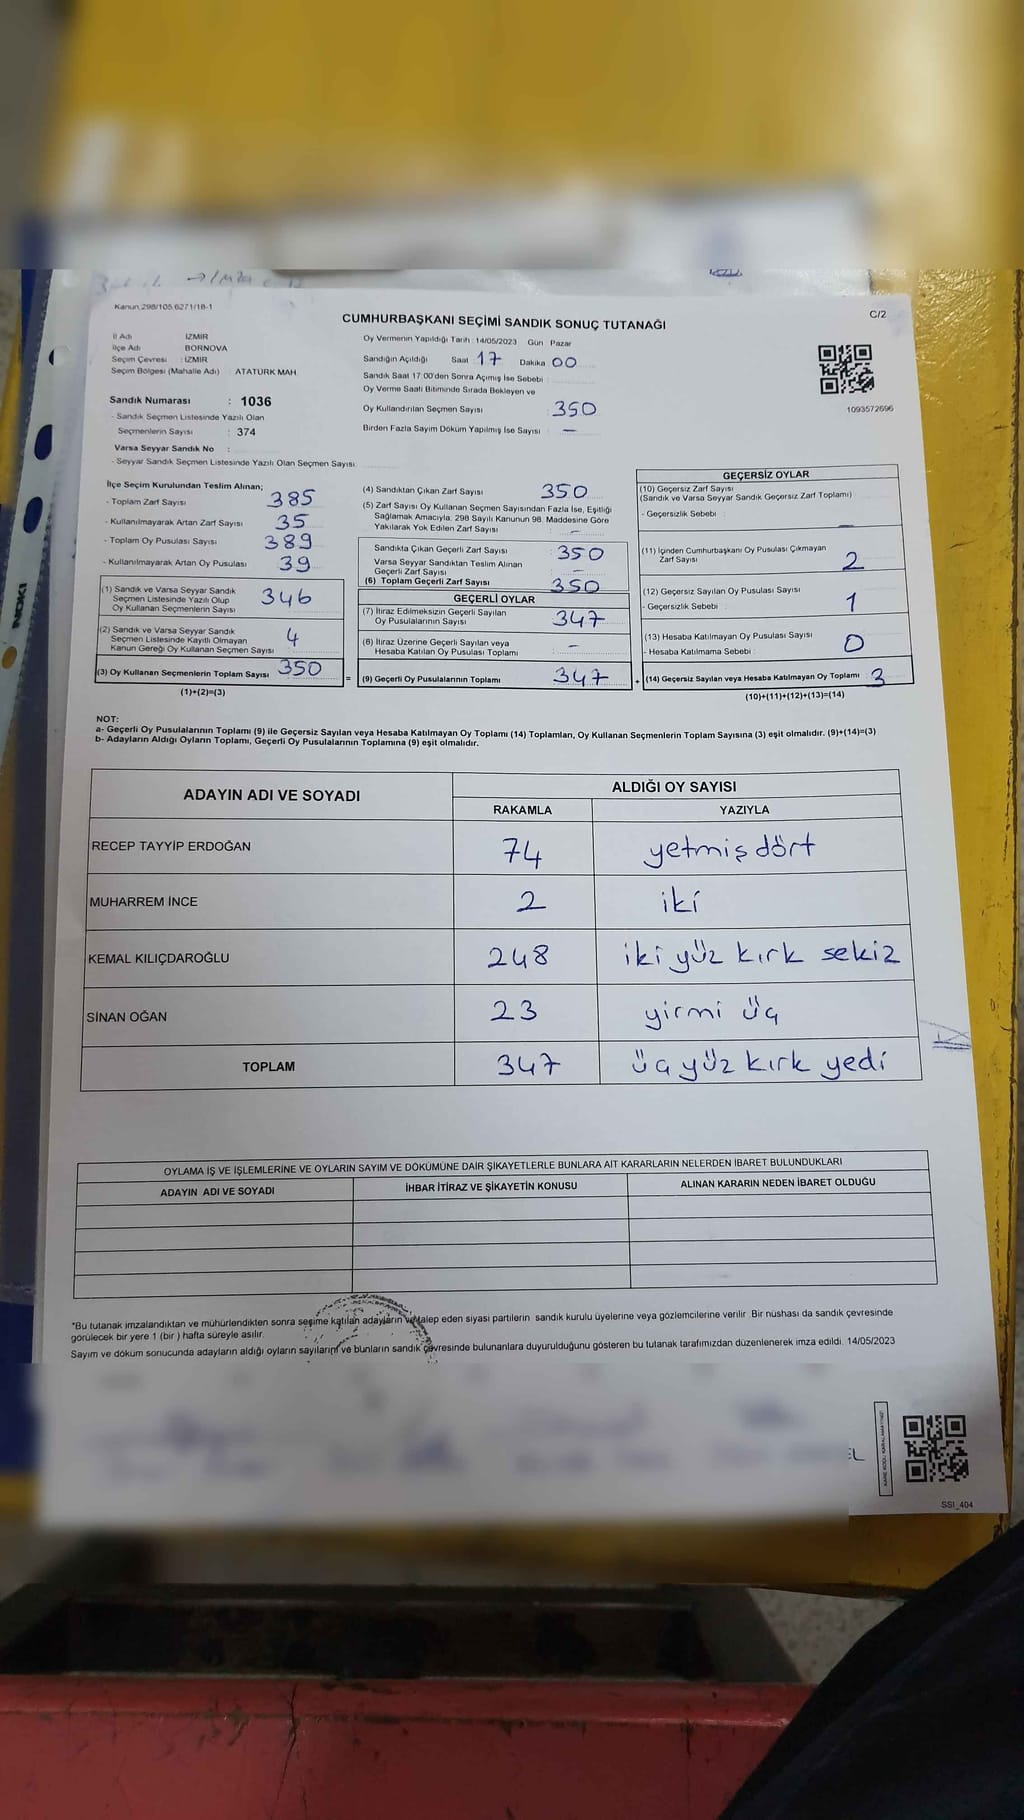 Kanun 298/105,6271/18-1
C/2
CUMHURBAŞKANI SEÇİMİ SANDIK SONUÇ TUTANAĞI
İl Adı İZMİR
İlçe Adı BORNOVA
Seçim Çevresi : İZMİR
Seçim Bölgesi (Mahalle Adı) : ATATÜRK MAH.
Sandık Numarası : 1036
- Sandık Seçmen Listesinde Yazılı Olan
Seçmenlerin Sayısı : 374
Varsa Seyyar Sandık No :
- Seyyar Sandık Seçmen Listesinde Yazılı Olan Seçmen Sayısı
Oy Vermenin Yapıldığı Tarih : 14/05/2023 Gün Pazar
Sandığın Açıldığı Saat 17 Dakika 00
Sandık Saat 17:00'den Sonra Açımış İse Sebebi :
Oy Verme Saati Bitiminde Sırada Bekleyen ve
Oy Kullandırılan Seçmen Sayısı : 350
Birden Fazla Sayım Döküm Yapılmış İse Sayısı : -
1093572696
İlçe Seçim Kurulundan Teslim Alınan;
- Toplam Zarf Sayısı 385
- Kullanılmayarak Artan Zarf Sayısı 35
- Toplam Oy Pusulası Sayısı 389
- Kullanılmayarak Artan Oy Pusulası 39
(1) Sandık ve Varsa Seyyar Sandık
Seçmen Listesinde Yazılı Olup
Oy Kullanan Seçmenlerin Sayısı 346
(2) Sandık ve Varsa Seyyar Sandık
Seçmen Listesinde Kayıtlı Olmayan
Kanun Gereği Oy Kullanan Seçmen Sayısı 4
(3) Oy Kullanan Seçmenlerin Toplam Sayısı 350
(1)+(2)=(3)
(4) Sandıktan Çıkan Zarf Sayısı 350
(5) Zarf Sayısı Oy Kullanan Seçmen Sayısından Fazla İse, Eşitliği
Sağlamak Amacıyla, 298 Sayılı Kanunun 98. Maddesine Göre
Yakılarak Yok Edilen Zarf Sayısı : -
Sandıkta Çıkan Geçerli Zarf Sayısı : 350
Varsa Seyyar Sandıktan Teslim Alınan
Geçerli Zarf Sayısı : -
(6) Toplam Geçerli Zarf Sayısı 350
GEÇERLİ OYLAR
(7) İtiraz Edilmeksizin Geçerli Sayılan
Oy Pusulalarının Sayısı 347
(8) İtiraz Üzerine Geçerli Sayılan veya
Hesaba Katılan Oy Pusulası Toplamı -
= (9) Geçerli Oy Pusulalarının Toplamı 347
GEÇERSİZ OYLAR
(10) Geçersiz Zarf Sayısı
(Sandık ve Varsa Seyyar Sandık Geçersiz Zarf Toplamı)
- Geçersizlik Sebebi : -
(11) İçinden Cumhurbaşkanı Oy Pusulası Çıkmayan
Zarf Sayısı 2
(12) Geçersiz Sayılan Oy Pusulası Sayısı
- Geçersizlik Sebebi : 1
(13) Hesaba Katılmayan Oy Pusulası Sayısı
- Hesaba Katılmama Sebebi : 0
+ (14) Geçersiz Sayılan veya Hesaba Katılmayan Oy Toplamı 3
(10)+(11)+(12)+(13)=(14)
NOT:
a- Geçerli Oy Pusulalarının Toplamı (9) ile Geçersiz Sayılan veya Hesaba Katılmayan Oy Toplamı (14) Toplamları, Oy Kullanan Seçmenlerin Toplam Sayısına (3) eşit olmalıdır. (9)+(14)=(3)
b- Adayların Aldığı Oyların Toplamı, Geçerli Oy Pusulalarının Toplamına (9) eşit olmalıdır.
ADAYIN ADI VE SOYADI
ALDIĞI OY SAYISI
RAKAMLA YAZIYLA
RECEP TAYYİP ERDOĞAN 74 yetmiş dört
MUHARREM İNCE 2 iki
KEMAL KILIÇDAROĞLU 248 iki yüz kırk sekiz
SİNAN OĞAN 23 yirmi üç
TOPLAM 347 üç yüz kırk yedi
OYLAMA İŞ VE İŞLEMLERİNE VE OYLARIN SAYIM VE DÖKÜMÜNE DAİR ŞİKAYETLERLE BUNLARA AİT KARARLARIN NELERDEN İBARET BULUNDUKLARI
ADAYIN ADI VE SOYADI İHBAR İTİRAZ VE ŞİKAYETİN KONUSU ALINAN KARARIN NEDEN İBARET OLDUĞU
*Bu tutanak imzalandıktan ve mühürlendikten sonra seçime katılan adayların ve talep eden siyasi partilerin sandık kurulu üyelerine veya gözlemcilerine verilir. Bir nüshası da sandık çevresinde
görülecek bir yere 1 (bir) hafta süreyle asılır.
Sayım ve döküm sonucunda adayların aldığı oyların sayılarını ve bunların sandık çevresinde bulunanlara duyurulduğunu gösteren bu tutanak tarafımızdan düzenlenerek imza edildi. 14/05/2023
SSI_404